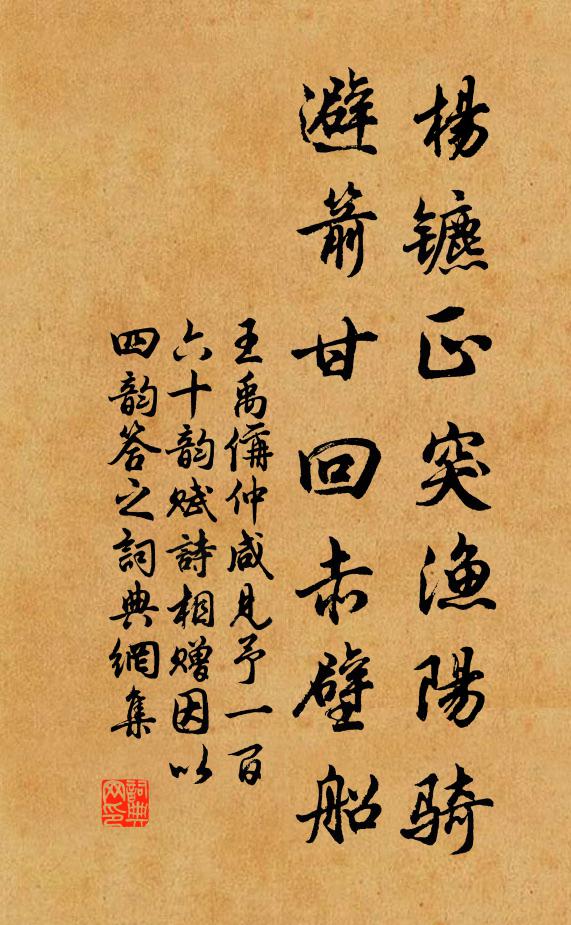 楊鑣正突漁陽騎
避箭甘回赤壁船
王禹偁仲咸見予一百
六十韵赋詩相贈因以
四韵答之詞典網集
詞典网印